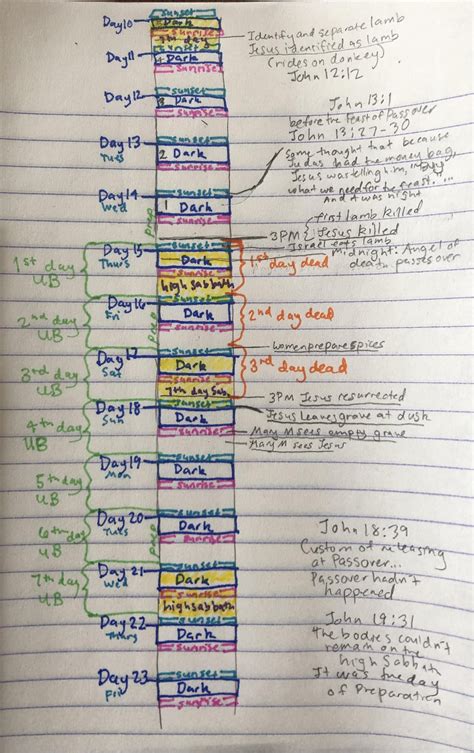 sunset
Day 10
Dark
sunrise
7th day
Identify and separate lamb
Jesus identified as lamb
(rides on donkey)
John 12:12
sunset
Day 11
Dark
sunrise
sunset
Day 12
3 Dark
sunrise
John 13:1
before the feast of Passover
John 13:27-30
some thought that because
Judas had the money bag,
Jesus was telling him, "buy
what we need for the feast....
And it was night
sunset
Day 13
Tues
2 Dark
sunrise
sunset
Day 14
Wed
1 Dark
sunrise
prep
first lamb killed
3PM { Jesus killed
Israel eats lamb
Midnight: Angel of
death passes over
sunset
Day 15
Thurs
Dark
sunrise
high Sabbath
1st day
UB
1st day dead
sunset
Day 16
Fri
Dark
sunrise
Prep
2nd day
UB
2nd day dead
women prepare spices
sunset
Day 17
Sat
Dark
sunrise
7th day Sab.
3rd day
UB
3rd day dead
3PM Jesus resurrected
Jesus leaves grave at dusk
sunset
Day 18
Sun
Dark
sunrise
4th day
UB
Mary M sees empty grave
Mary M sees Jesus
sunset
Day 19
Mon
Dark
sunrise
5th day
UB
sunset
Day 20
Tues
Dark
sunrise
prep
6th day
UB
John 18:39
Custom of releasing
at Passover...
Passover hadn't
happened
sunset
Day 21
Wed
Dark
sunrise
high Sabbath
7th day
UB
sunset
Day 22
Thurs
Dark
sunrise
John 19:31
the bodies couldn't
remain on the
high Sabbath
It was the day
of Preparation
sunset
Day 23
Fri
Dark
sunrise